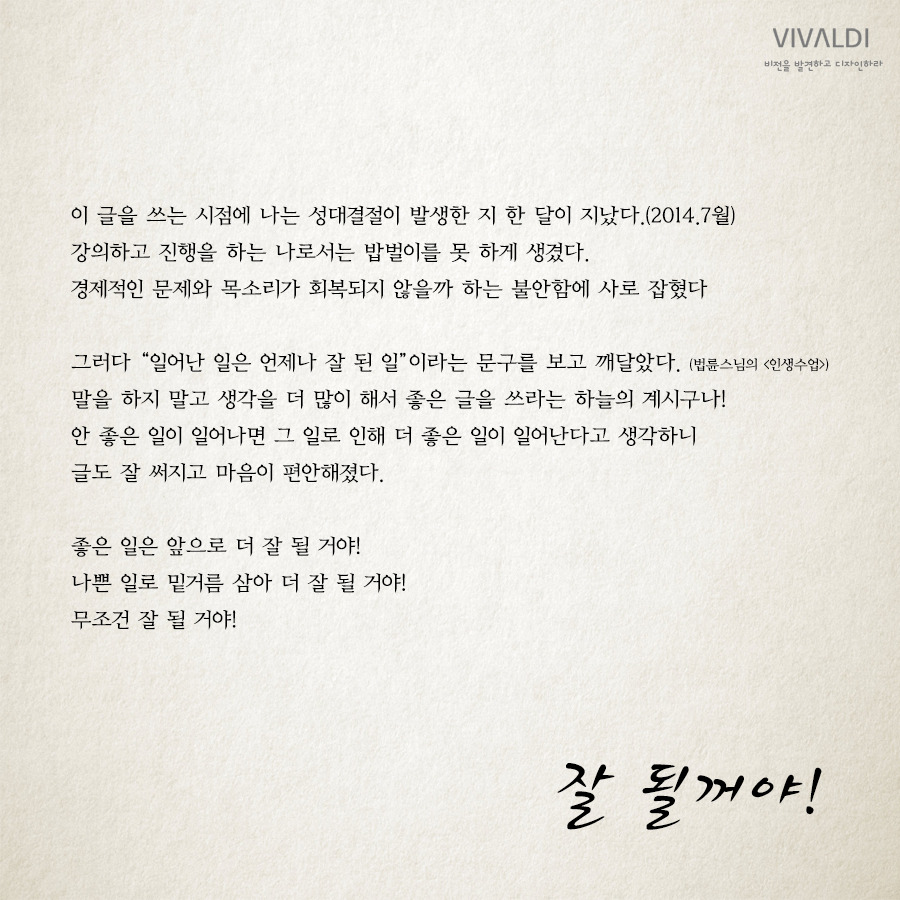 VIVALDI
비전을 발견하고 디자인하라
이 글을 쓰는 시점에 나는 성대결절이 발생한 지 한 달이 지났다.(2014.7월)
강의하고 진행을 하는 나로서는 밥벌이를 못 하게 생겼다.
경제적인 문제와 목소리가 회복되지 않을까 하는 불안함에 사로 잡혔다
그러다 “일어난 일은 언제나 잘 된 일”이라는 문구를 보고 깨달았다. (법륜스님의 <인생수업>)
말을 하지 말고 생각을 더 많이 해서 좋은 글을 쓰라는 하늘의 계시구나!
안 좋은 일이 일어나면 그 일로 인해 더 좋은 일이 일어난다고 생각하니
글도 잘 써지고 마음이 편안해졌다.
좋은 일은 앞으로 더 잘 될 거야!
나쁜 일로 밑거름 삼아 더 잘 될 거야!
무조건 잘 될 거야!
잘 될꺼야!